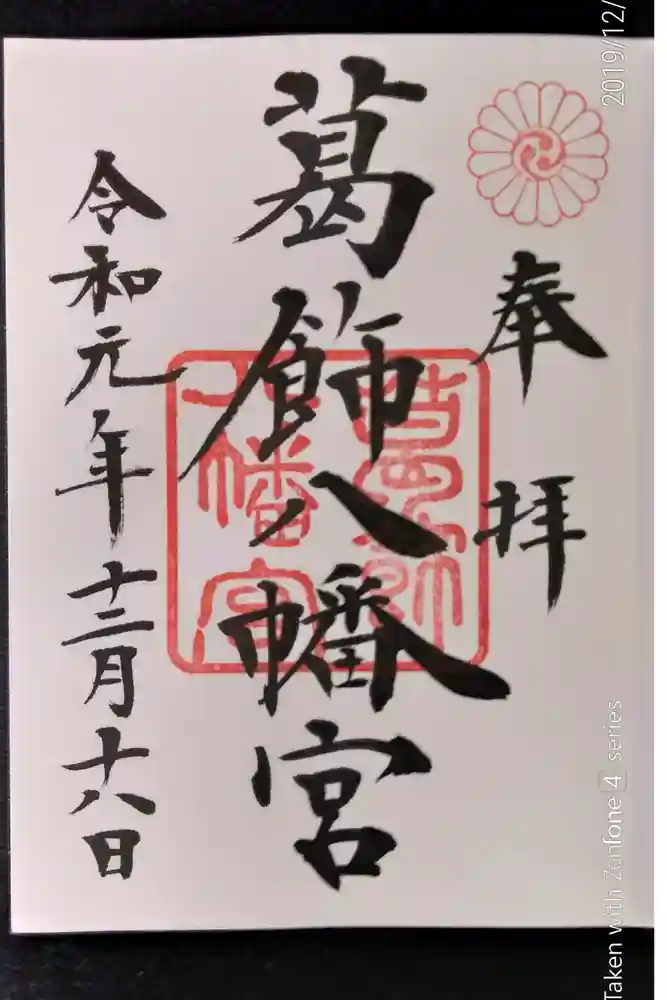 奉拝
葛飾八幡宮
葛飾
八幡宮
令和元年十二月十八日
2019/12/
Taken with Zenfone 4 series